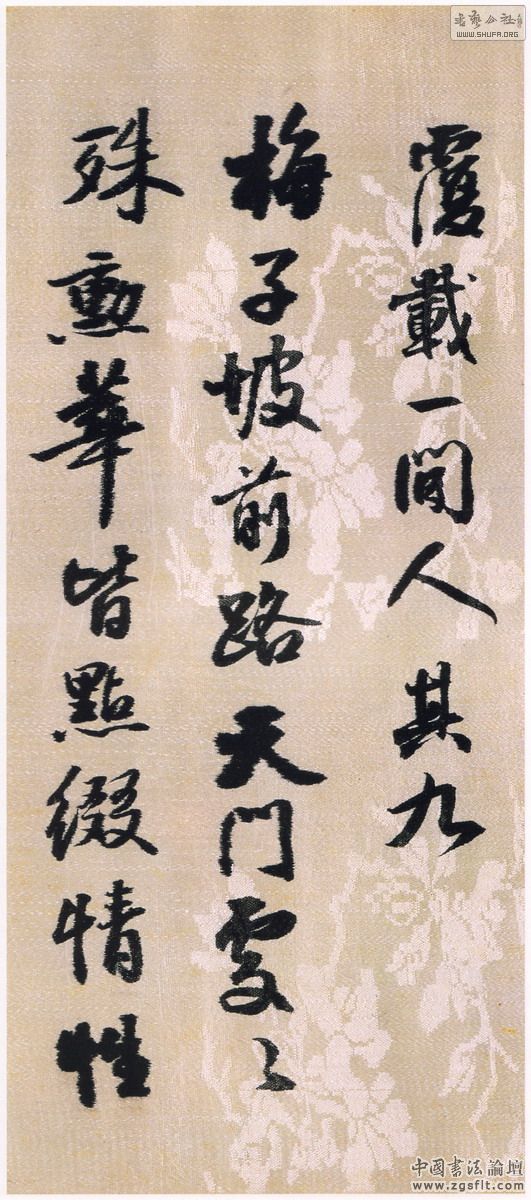 覆載一閒人 其九
梅子坡前路天門處〻
殊勲華皆點綴情性
WWW.SHUFA.ORG
中國書法論壇
www.zgsflt.com